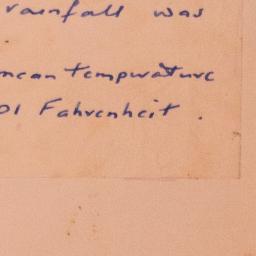 rainfall was
mean temperature
01 Fahrenheit .